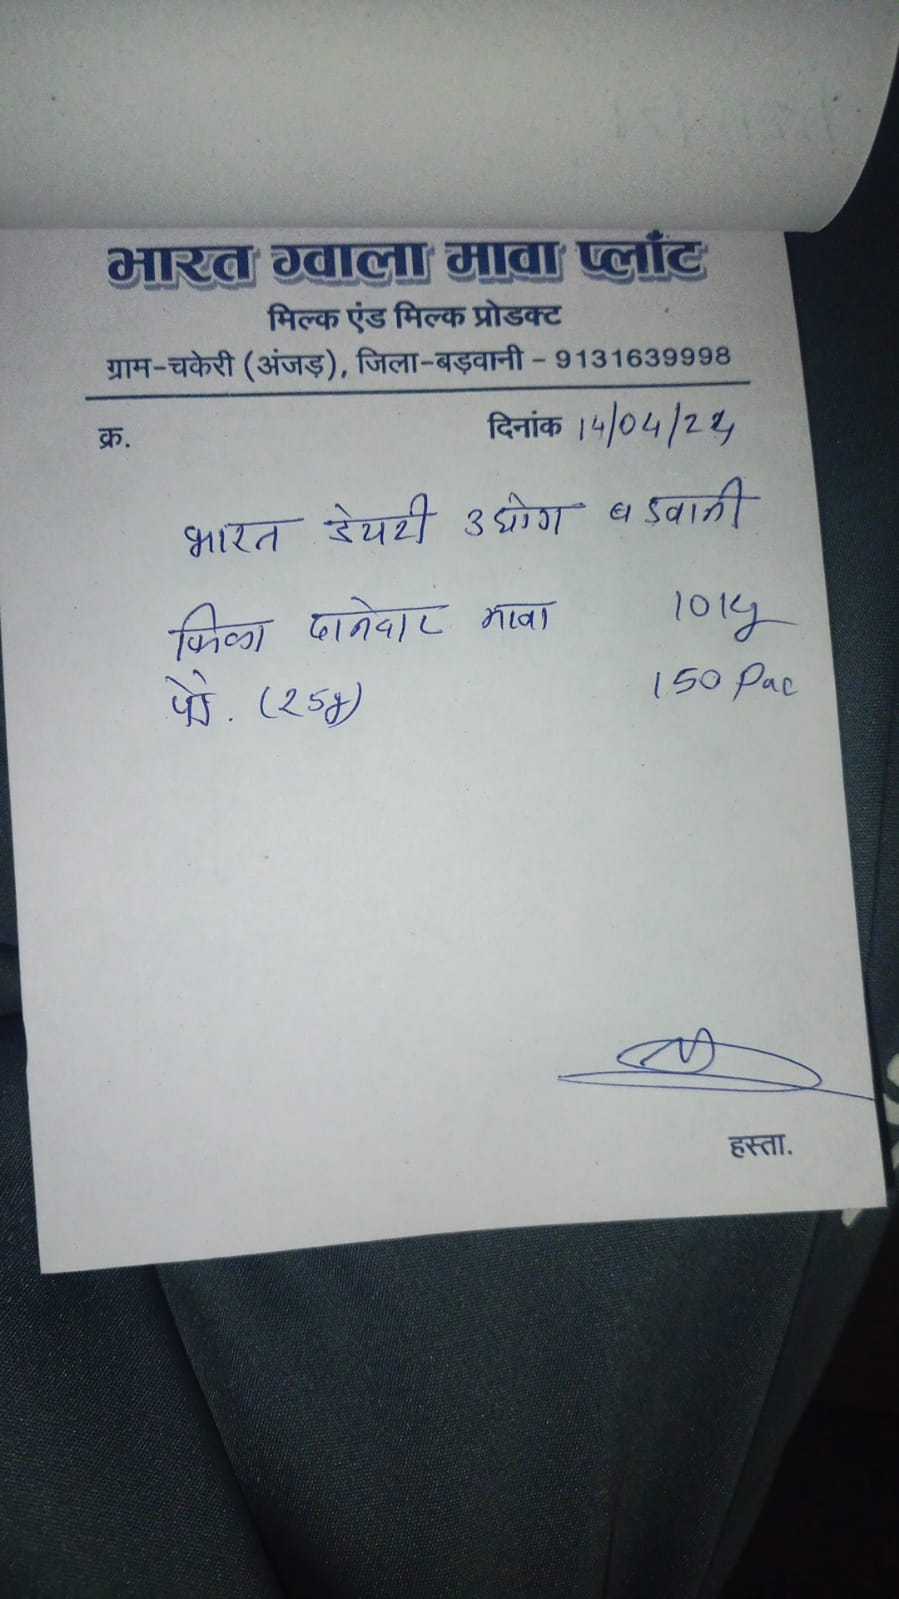 भारत ग्वाला मावा प्लाँट
मिल्क एंड मिल्क प्रोडक्ट
ग्राम-चकेरी (अंजड़), जिला-बड़वानी - 9131639998
क्र. दिनांक 14/04/2
भारत डेयरी उद्योग बडवानी
दानेदार मावा
150 Pac
हस्ता.